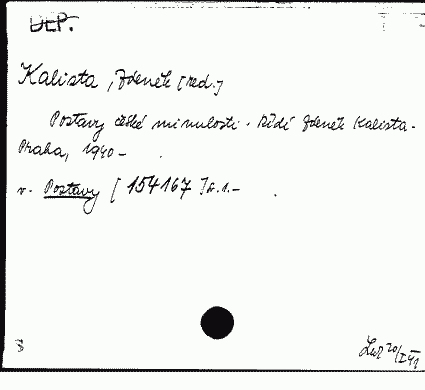 DEP.
Kalista, Zdeněk [red.]
Postavy české minulosti. Řídí Zdeněk Kalista.
Praha, 1940-
v. Postavy [154167] č. 1.-
8
20/I 41